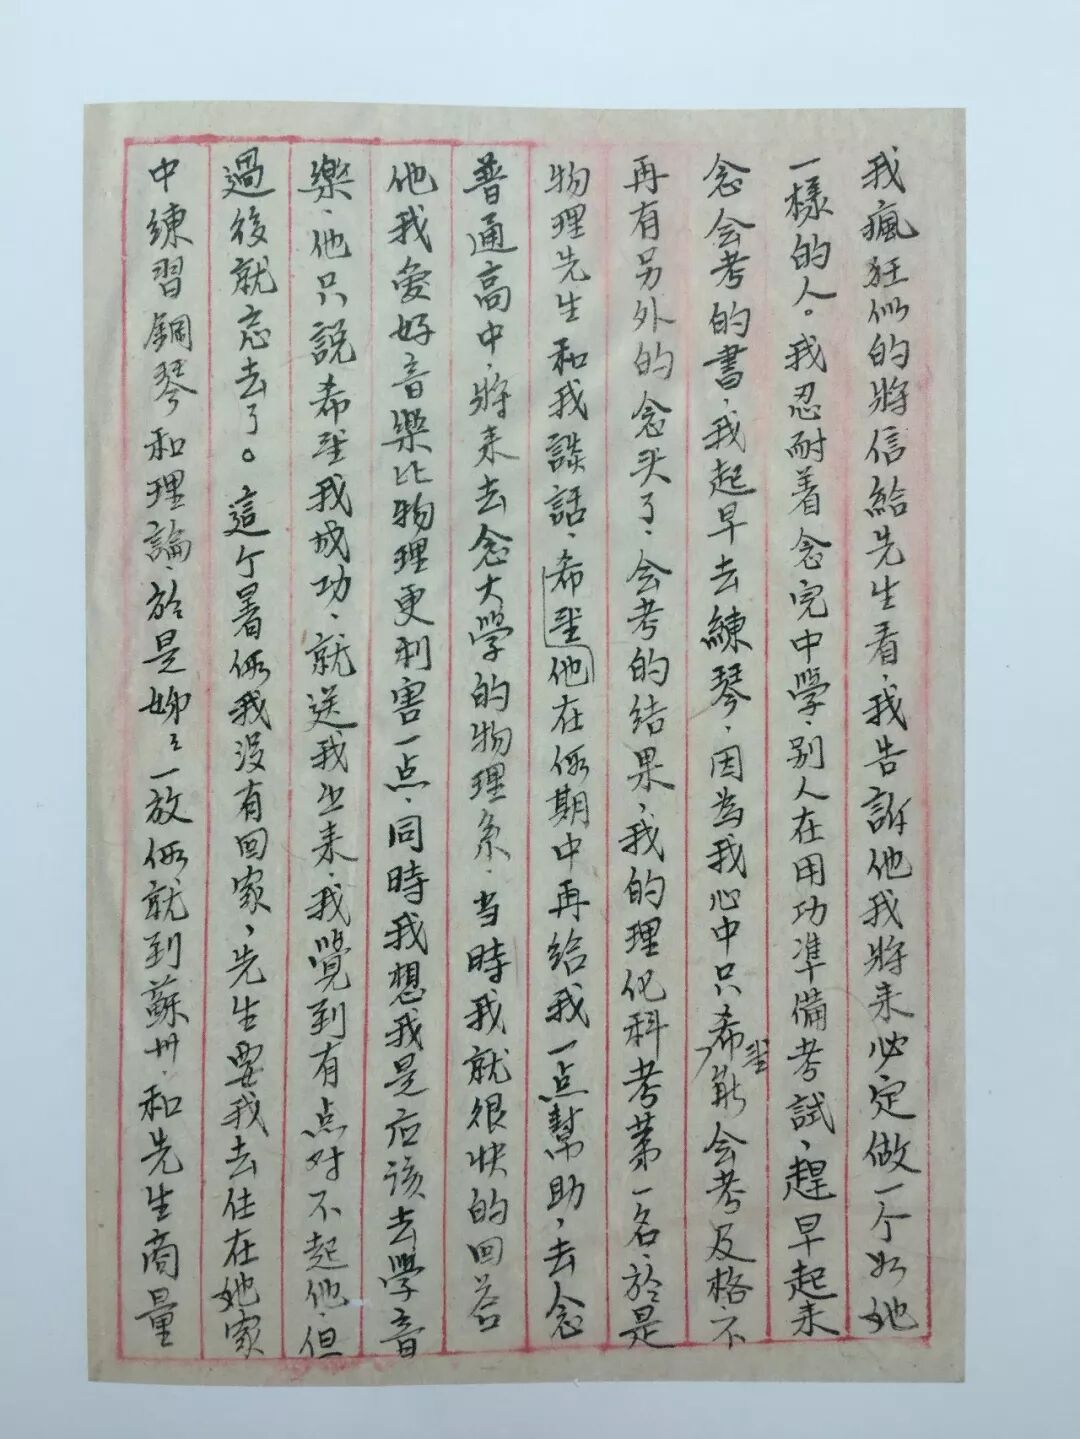 我瘋狂似的將信給先生看，我告訴他我將来必定做一个如她
一樣的人。我忍耐着念完中學，别人在用功準備考試，趕早起来
念会考的書，我起早去練琴，因為我心中只希望能会考及格，不
再有另外的念头了，会考的结果，我的理化科考第一名，於是
物理先生和我談話，希望他在假期中再给我一点幫助，去念
普通高中，將来去念大學的物理系，当時我就很快的回答
他我爱好音樂比物理更利害一点，同時我想我是应该去學音
樂，他只說希望我成功，就送我出来，我覺到有点对不起他，但
過後就忘去了。這个暑假我没有回家，先生要我去住在她家
中練習鋼琴和理論，於是姊〻一放假就到蘇州，和先生商量